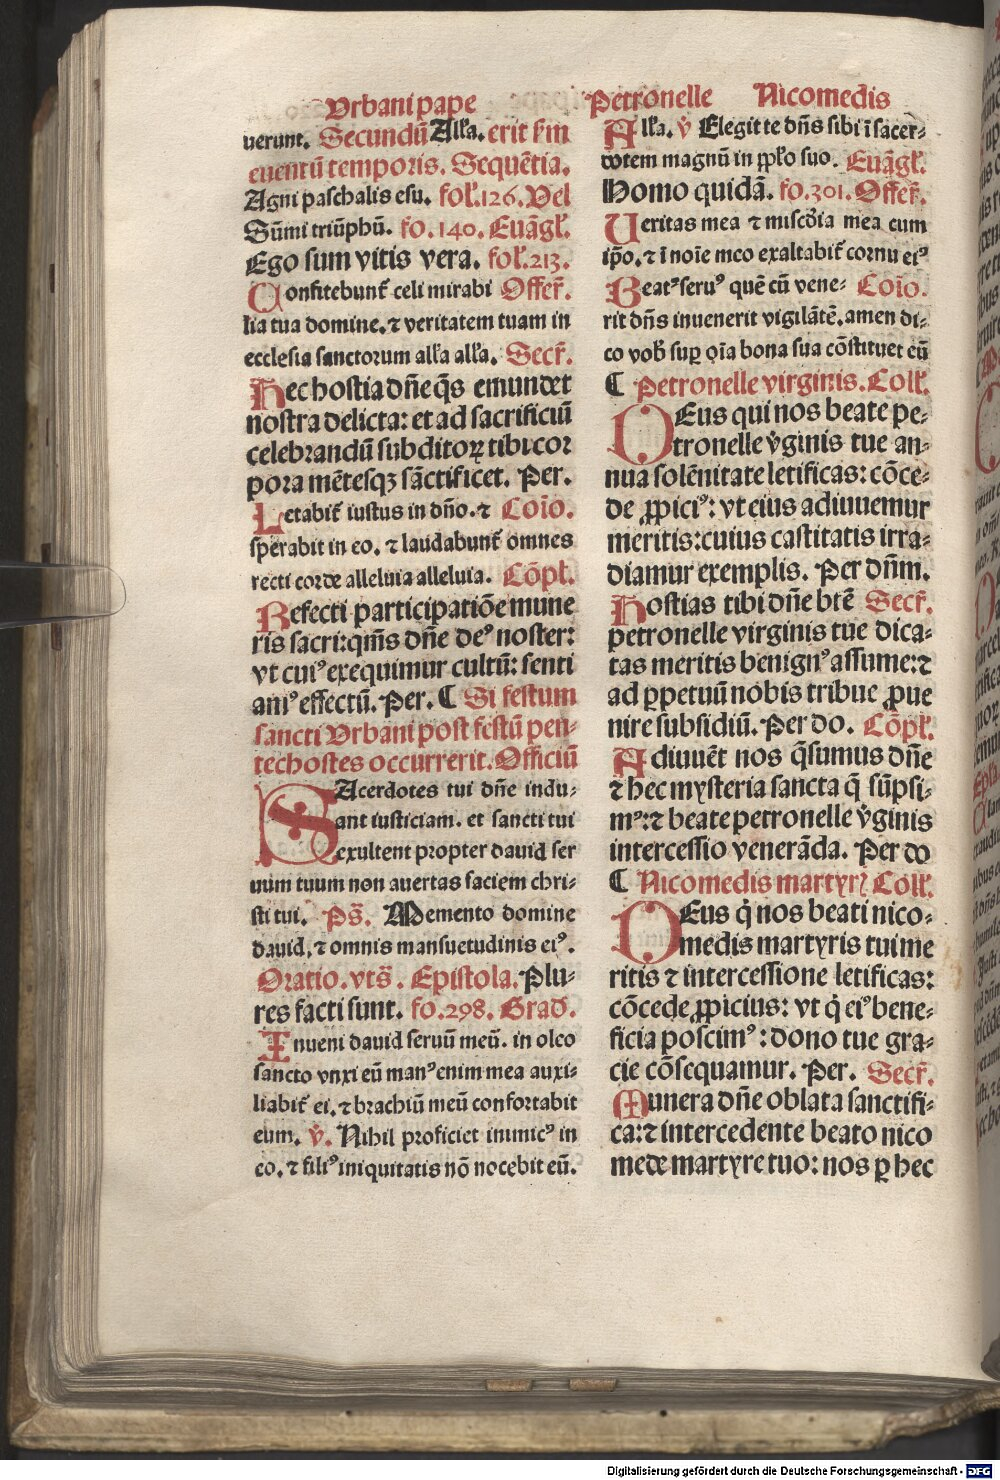 Urbani pape
Petronelle Nicomedis
uerunt. Secundū Alľa. erit ẜm
euentū temporis. Sequētia.
Agni paschalis esu. foľ.126. Vel
Sūmi triūphū. fo.140. Euāgľ.
Ego sum vitis vera. foľ.213.
Confitebunť celi mirabi Offeř.
lia tua domine. ⁊ veritatem tuam in
ecclesia sanctorum alľa alľa. Secř.
Hec hostia dñe q̄s emundet
nostra delicta: et ad sacrificiū
celebrandū subditoꝝ tibi cor
pora mētesqꝫ sāctificet. Per.
Letabiť iustus in dño. ⁊ Coīo.
sperabit in eo. ⁊ laudabunť omnes
recti corde alleluia alleluia. Cōpľ.
Refecti participatiōe mune
ris sacri: qm̄s dñe deꝰ noster:
vt cuiꝰ exequimur cultū: senti
amꝰ effectū. Per. ¶ Si festum
sancti Urbani post festū pen⸗
techostes occurrerit. Officiū
SAcerdotes tui dñe indu⸗
ant iusticiam. et sancti tui
exultent propter dauid ser
uum tuum non auertas faciem chri⸗
sti tui. Ps̄. Memento domine
dauid. ⁊ omnis mansuetudinis eiꝰ.
Oratio. vts̄. Epistola. Plu⸗
res facti sunt. fo.298. Grad.
Inueni dauid seruū meū. in oleo
sancto vnxi eū manꝰ enim mea auxi⸗
liabiť ei. ⁊ brachiū meū confortabit
eum. v̊. Nihil proficiet inimicꝰ in
eo. ⁊ filiꝰ iniquitatis nō nocebit eū.
Alľa. v̊ Elegit te dñs sibi ī sacer⸗
dotem magnū in ppľo suo. Euāgľ.
Homo quidā. fo.301. Offeř.
Ueritas mea ⁊ misc̄dia mea cum
ip̄o. ⁊ i noīe meo exaltabiť cornu eiꝰ
Beatꝰ seruꝰ quē cū vene⸗ Coīo.
rit dñs inuenerit vigilātē. amen di⸗
co vob̄ suꝑ oīa bona sua cōstituet eū
¶ Petronelle virginis. Colľ.
DEus qui nos beate pe⸗
tronelle v̊ginis tue an⸗
nua solēnitate letificas: cōce⸗
de ꝓpiciꝰ: vt eius adiuuemur
meritis: cuius castitatis irra⸗
diamur exemplis. Per dñm.
Hostias tibi dñe btē Secř.
petronelle virginis tue dica⸗
tas meritis benignꝰ assume: ⁊
ad ꝑpetuū nobis tribue ꝓue
nire subsidiū. Per do. Cōpľ.
Adiuuēt nos q̄sumus dñe
⁊ hec mysteria sancta q̄ sūpsi⸗
mꝰ: ⁊ beate petronelle v̊ginis
intercessio venerāda. Per do
¶ Nicomedis martyrꝭ Colľ.
DEus q̇ nos beati nico⸗
medis martyris tui me
ritis ⁊ intercessione letificas:
cōcede ꝓpicius: vt q̇ eiꝰ bene⸗
ficia poscimꝰ: dono tue gra⸗
cie cōsequamur. Per. Secř.
Munera dñe oblata sanctifi⸗
ca: ⁊ intercedente beato nico
mede martyre tuo: nos ꝑ hec
Digitalisierung gefördert durch die Deutsche Forschungsgemeinschaft - DFG